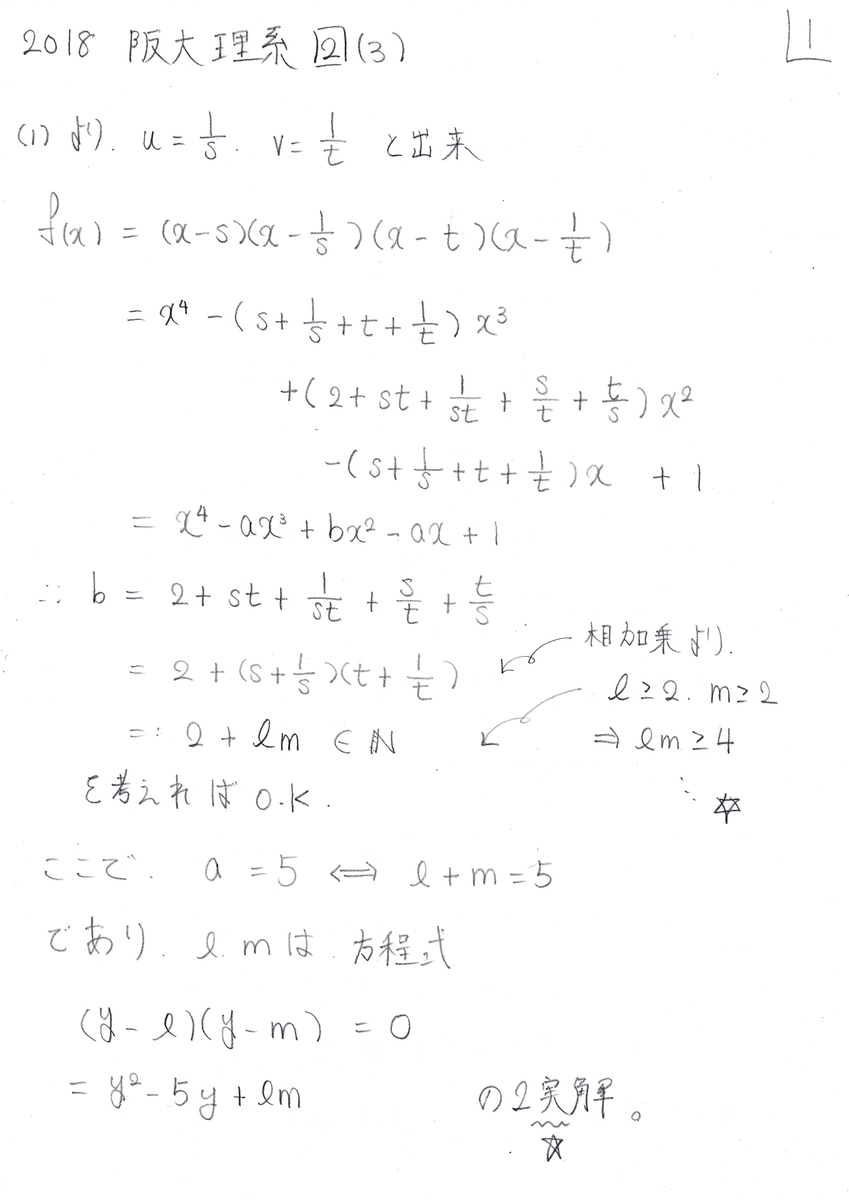 2018 阪大理系 2 (3)
1
(1) より. u = 1/s. v = 1/t と出来
f(x) = (x-s)(x-1/s)(x-t)(x-1/t)
= x⁴ - (s+1/s+t+1/t) x³
+(2+st+1/st+s/t+t/s) x²
-(s+1/s+t+1/t)x + 1
= x⁴-ax³+bx²-ax+1
∴ b = 2+st+1/st+s/t+t/s
相加乗より.
= 2+(s+1/s)(t+1/t)
l≥2. m≥2
=: 2+lm ∈ ℕ
⇒ lm≥4
を考えれば O.K.
∴ ☆
ここで. a = 5 ⇔ l+m=5
であり. l. mは. 方程式
(y-l)(y-m) = 0
= y²-5y+lm の2実解。
☆